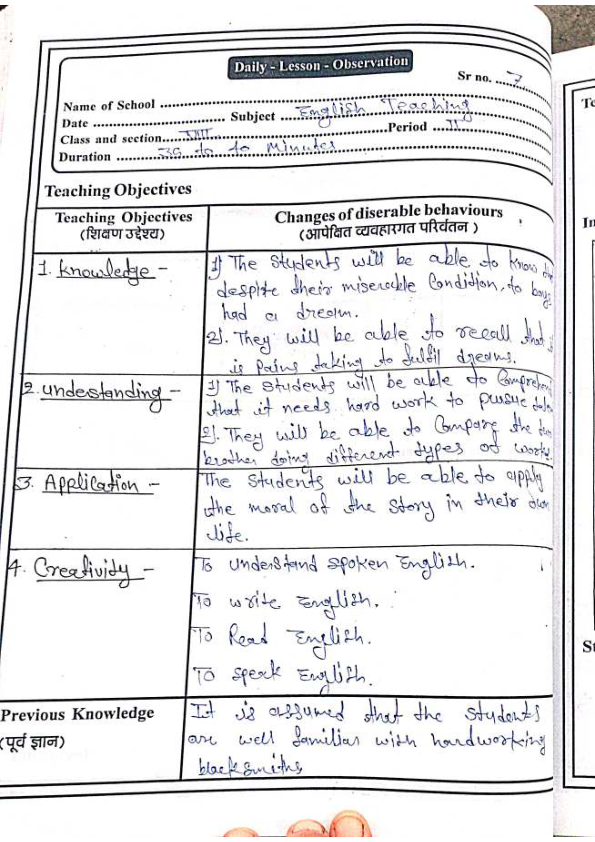 Daily - Lesson - Observation
Sr no. ....7
Name of School ..........
Date .......... Subject ....English Teaching
Class and section....VIII..........Period ..II..
Duration ....30 to 40 Minutes
Teaching Objectives
Teaching Objectives
(शिक्षण उद्देश्य)
Changes of diserable behaviours
(आपेक्षित व्यवहारगत परिवर्तन )
1. Knowledge -
1) The Students will be able to know
despite their miserable Condition, to boys
had a dream.
2). They will be able to recall that
is Pains taking to fulfil dreams.
2. Understanding -
1) The Students will be able to Comprehen
that it needs hard work to pursue
2). They will be able to Compare the two
brother doing different types of works.
3. Application -
The Students will be able to apply
the moral of the Story in their own
life.
4. Creativity -
To understand spoken English.
To write English.
To Read English.
To speak English.
Previous Knowledge
(पूर्व ज्ञान)
It is assumed that the students
are well familiar with hardworking
blacksmiths
Te
In
St